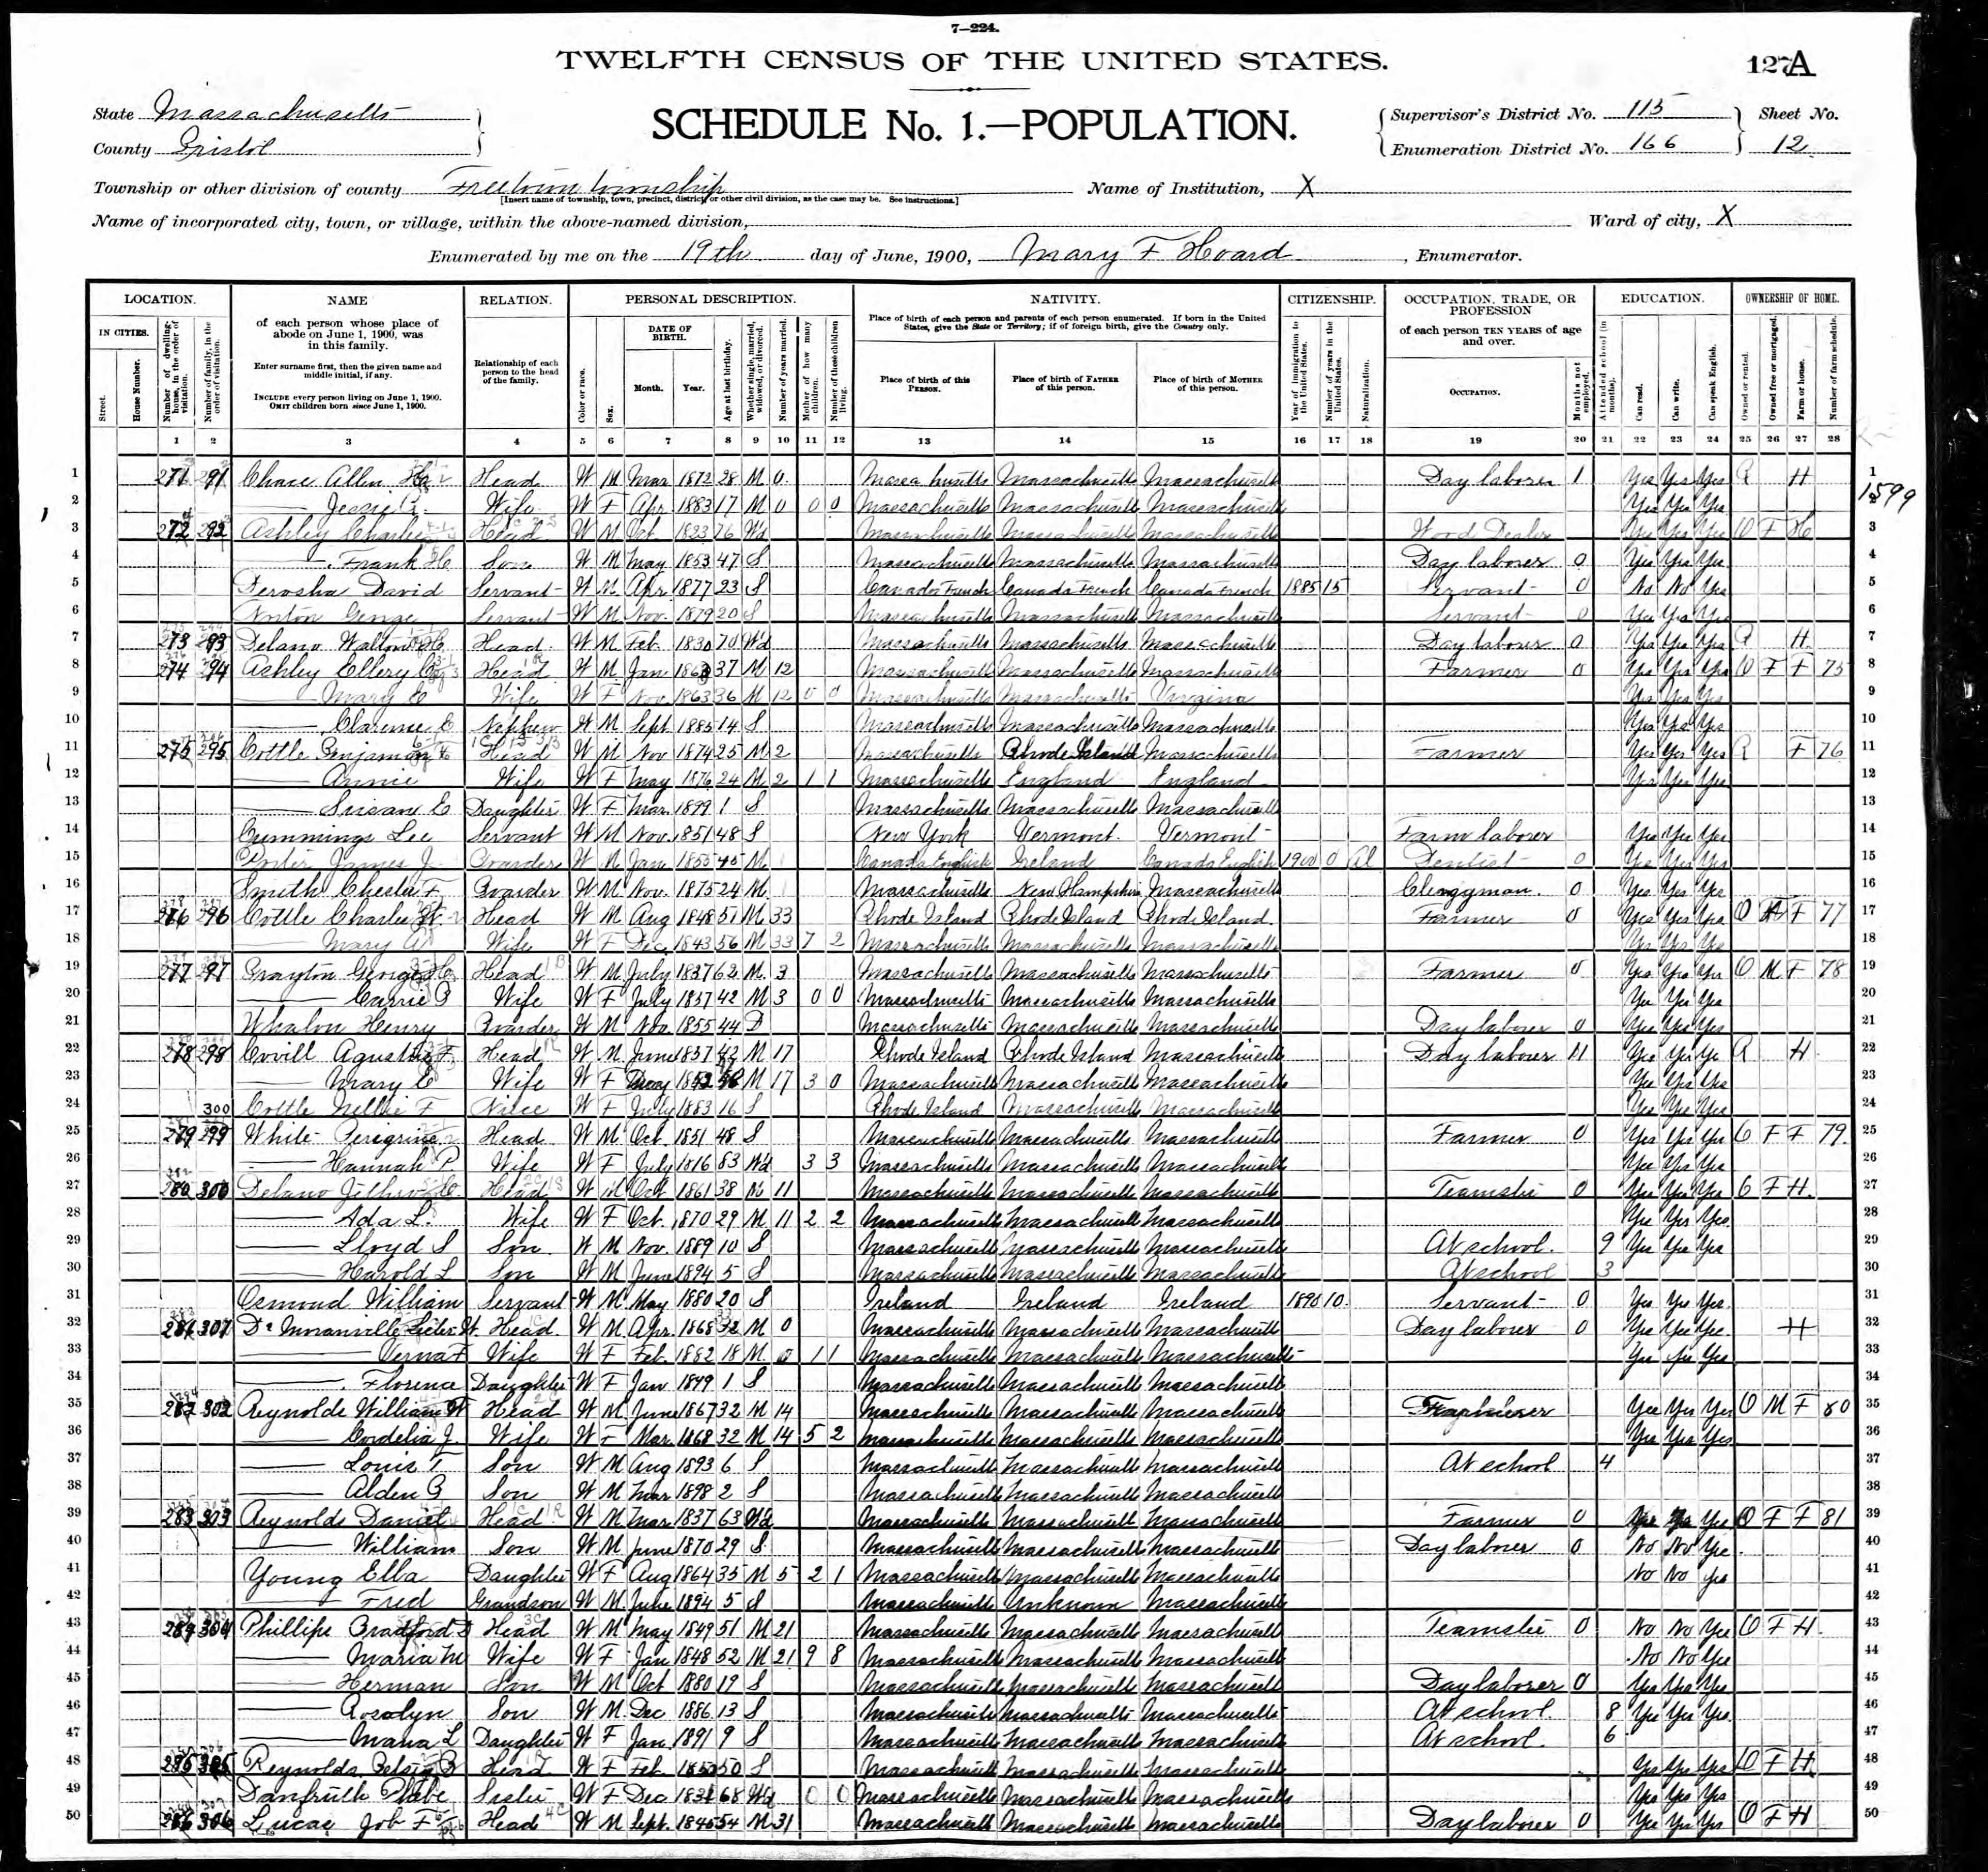 7—224.
TWELFTH CENSUS OF THE UNITED STATES.
127A
State Massachusetts
SCHEDULE No. 1.—POPULATION.
Supervisor's District No. 115
Sheet No.
County Bristol
Enumeration District No. 166
12
Township or other division of county Freetown township
Name of Institution, X
[Insert name of township, town, precinct, district, or other civil division, as the case may be. See instructions.]
Name of incorporated city, town, or village, within the above-named division,
Ward of city, X
Enumerated by me on the 19th day of June, 1900, Mary F Hoard, Enumerator.
LOCATION. NAME RELATION. PERSONAL DESCRIPTION. NATIVITY. CITIZENSHIP. OCCUPATION, TRADE, OR PROFESSION EDUCATION. OWNERSHIP OF HOME.
IN CITIES. Street. House Number. Number of dwelling-house, in the order of visitation. Number of family, in the order of visitation.
of each person whose place of abode on June 1, 1900, was in this family.
Enter surname first, then the given name and middle initial, if any.
INCLUDE every person living on June 1, 1900. OMIT children born since June 1, 1900.
Relationship of each person to the head of the family.
Color or race. Sex. DATE OF BIRTH. Month. Year. Age at last birthday. Whether single, married, widowed, or divorced. Number of years married. Mother of how many children. Number of these children living.
Place of birth of each person and parents of each person enumerated. If born in the United States, give the State or Territory; if of foreign birth, give the Country only.
Place of birth of this PERSON. Place of birth of FATHER of this person. Place of birth of MOTHER of this person.
Year of immigration to the United States. Number of years in the United States. Naturalization.
of each person TEN YEARS of age and over.
OCCUPATION. Months not employed.
Attended school (in months). Can read. Can write. Can speak English.
Owned or rented. Owned free or mortgaged. Farm or house. Number of farm schedule.
1 2 3 4 5 6 7 8 9 10 11 12 13 14 15 16 17 18 19 20 21 22 23 24 25 26 27 28
1 271 291 Chace Allen Head W M Mar 1872 28 M 0 Massachusetts Massachusetts Massachusetts Day laborer 1 Yes Yes Yes R H 1
2 Wife W F Apr 1883 17 M 0 0 0 Massachusetts Massachusetts Massachusetts Yes Yes Yes 1599
3 272 292 Ashley Charles Head W M Oct 1823 76 Wd Massachusetts Massachusetts Massachusetts Wood Dealer Yes Yes Yes O F H 3
4 Frank H Son W M May 1853 47 S Massachusetts Massachusetts Massachusetts Day laborer 0 Yes Yes Yes 4
5 Perosha David Servant W M Apr 1877 23 S Canada French Canada French Canada French 1885 15 Servant 0 No No Yes 5
6 Norton George Servant W M Nov. 1879 20 S Massachusetts Massachusetts Massachusetts Servant 0 Yes Yes Yes 6
7 273 293 Delano Walton Head W M Feb 1830 70 Wd Massachusetts Massachusetts Massachusetts Day laborer 0 Yes Yes Yes R H 7
8 274 294 Ashley Ellery Head W M Jan 1863 37 M 12 Massachusetts Massachusetts Massachusetts Farmer 0 Yes Yes Yes O F F 75 8
9 Mary E Wife W F Nov 1863 36 M 12 0 0 Massachusetts Massachusetts Virginia Yes Yes Yes 9
10 Clarence E Nephew W M Sept 1885 14 S Massachusetts Massachusetts Massachusetts Yes Yes Yes 10
11 275 295 Cottle Benjamin Head W M Nov 1874 25 M 2 Massachusetts Rhode Island Massachusetts Farmer Yes Yes Yes R F 76 11
12 Annie Wife W F May 1876 24 M 2 1 1 Massachusetts England England Yes Yes Yes 12
13 Susan E Daughter W F Mar 1899 1 S Massachusetts Massachusetts Massachusetts 13
14 Cummings Lee Servant W M Nov. 1851 48 S New York Vermont Vermont Farm laborer Yes Yes Yes 14
15 Porter James J Boarder W M Jan 1855 45 M Canada English Ireland Canada English 1900 0 Al Dentist 0 Yes Yes Yes 15
16 Smith Chester F Boarder W M Nov. 1875 24 M Massachusetts New Hampshire Massachusetts Clergyman. 0 Yes Yes Yes 16
17 276 296 Cottle Charles W. Head W M Aug 1848 51 M 33 Rhode Island Rhode Island Rhode Island Farmer 0 Yes Yes Yes O F 77 17
18 Mary A Wife W F Dec 1843 56 M 33 7 2 Massachusetts Massachusetts Massachusetts Yes Yes Yes 18
19 277 297 Brayton George H Head W M July 1837 62 M 3 Massachusetts Massachusetts Massachusetts Farmer 0 Yes Yes Yes O M F 78 19
20 Carrie B Wife W F July 1857 42 M 3 0 0 Massachusetts Massachusetts Massachusetts Yes Yes Yes 20
21 Whalon Henry Boarder W M Nov. 1855 44 D Massachusetts Massachusetts Massachusetts Day laborer 0 Yes Yes Yes 21
22 278 298 Covill Agustus F. Head W M June 1857 42 M 17 Rhode Island Rhode Island Massachusetts Day laborer 11 Yes Yes Yes R H 22
23 Mary E Wife W F May M 17 3 0 Massachusetts Massachusetts Massachusetts Yes Yes Yes 23
24 Cottle Nellie F Niece W F July 1883 16 S Rhode Island Massachusetts Massachusetts Yes Yes Yes 24
25 279 299 300 White Peregrine Head W M Oct 1851 48 S Massachusetts Massachusetts Massachusetts Farmer 0 Yes Yes Yes O F F 79 25
26 Hannah P. Wife W F July 1816 83 Wd 3 3 Massachusetts Massachusetts Massachusetts Yes Yes Yes 26
27 280 300 Delano Jethro Head W M Oct 1861 38 M 11 Massachusetts Massachusetts Massachusetts Teamster 0 Yes Yes Yes O F H 27
28 Ada L. Wife W F Oct. 1870 29 M 11 2 2 Massachusetts Massachusetts Massachusetts Yes Yes Yes 28
29 Lloyd S Son W M Nov. 1889 10 S Massachusetts Massachusetts Massachusetts At school. 9 Yes Yes Yes 29
30 Harold L Son W M June 1894 5 S Massachusetts Massachusetts Massachusetts At school 3 30
31 Osmond William Servant W M May 1880 20 S Ireland Ireland Ireland 1890 10 Servant 0 Yes Yes Yes 31
32 281 301 De Moranville Head W M Apr. 1868 32 M 0 Massachusetts Massachusetts Massachusetts Day laborer 0 Yes Yes Yes H 32
33 Verna F Wife W F Feb. 1882 18 M 0 1 1 Massachusetts Massachusetts Massachusetts Yes Yes Yes 33
34 Florence Daughter W F Jan 1899 1 S Massachusetts Massachusetts Massachusetts 34
35 282 302 Reynolds William Head W M June 1867 32 M 14 Massachusetts Massachusetts Massachusetts Yes Yes Yes O M F 80 35
36 Cordelia J Wife W F Mar 1868 32 M 14 5 2 Massachusetts Massachusetts Massachusetts Yes Yes Yes 36
37 Louis T Son W M Aug 1893 6 S Massachusetts Massachusetts Massachusetts At school 4 37
38 Alden B Son W M Mar 1898 2 S Massachusetts Massachusetts Massachusetts 38
39 283 303 Reynolds Daniel Head W M Mar 1837 63 Wd Massachusetts Massachusetts Massachusetts Farmer 0 Yes Yes Yes O F F 81 39
40 William Son W M June 1870 29 S Massachusetts Massachusetts Massachusetts Day laborer 0 No No Yes 40
41 Young Ella Daughter W F Aug 1864 35 M 5 2 1 Massachusetts Massachusetts Massachusetts No No Yes 41
42 Fred Grandson W M June 1894 5 S Massachusetts Unknown Massachusetts 42
43 284 304 Phillips Bradford Head W M May 1849 51 M 21 Massachusetts Massachusetts Massachusetts Teamster 0 No No Yes O F H 43
44 Maria M Wife W F Jan 1848 52 M 21 9 8 Massachusetts Massachusetts Massachusetts No No Yes 44
45 Herman Son W M Oct 1880 19 S Massachusetts Massachusetts Massachusetts Day laborer 0 Yes Yes Yes 45
46 Rosalyn Son W M Dec 1886 13 S Massachusetts Massachusetts Massachusetts At school 8 Yes Yes Yes 46
47 Maria L Daughter W F Jan 1891 9 S Massachusetts Massachusetts Massachusetts At school. 6 47
48 285 305 Reynolds Betsy B Head W F Feb 1850 50 S Massachusetts Massachusetts Massachusetts Yes Yes Yes O F H 48
49 Danforth Phebe Sister W F Dec 1831 68 Wd 0 0 Massachusetts Massachusetts Massachusetts Yes Yes Yes 49
50 286 306 Lucas Job F Head W M Sept. 1845 54 M 31 Massachusetts Massachusetts Massachusetts Day laborer 0 Yes Yes Yes O F H 50